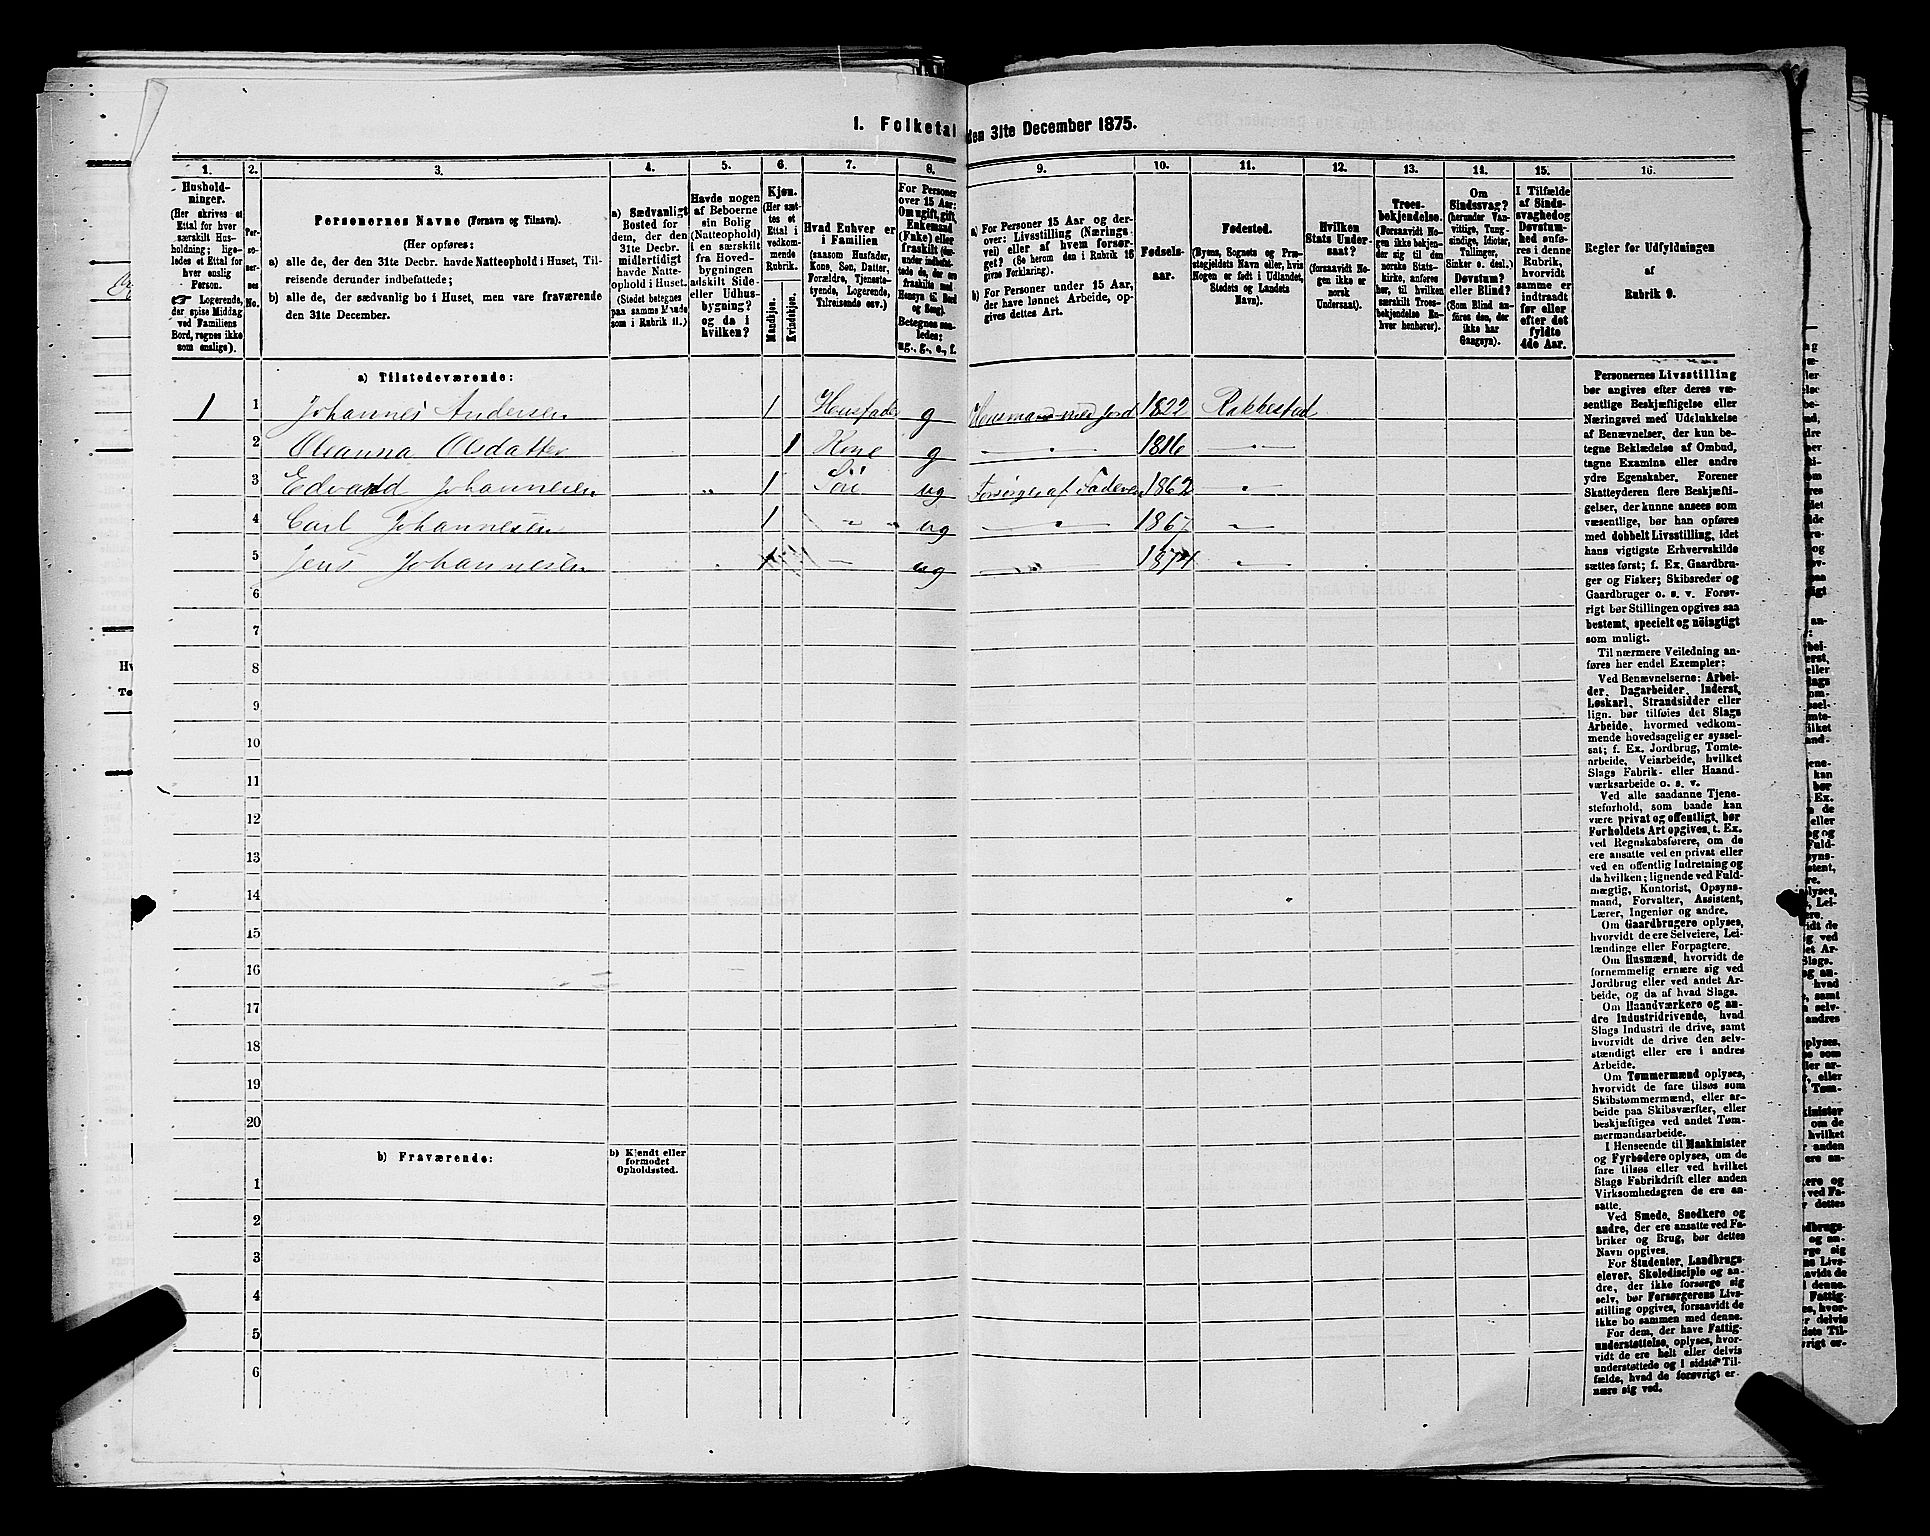 1. Folketal den 31te December 1875.
1. 2. 3. 4. 5. 6. 7. 8. 9. 10. 11. 12. 13. 14. 15. 16.
Hushold-
ninger.
(Her skrives et
Ettal for hver
særskilt Hus-
holdning; lige-
ledes et Ettal for
hver enslig
Person.
☞ Logerende,
der spise Middag
ved Familiens
Bord, regnes ikke
som enslige).
Personernes No.
Personernes Navne (Fornavn og Tilnavn).
(Her opføres:
a) alle de, der den 31te Decbr. havde Natteophold i Huset, Til-
reisende derunder indbefattede;
b) alle de, der sædvanlig bo i Huset, men vare fraværende
den 31te December.
a) Sædvanligt
Bosted for
dem, der den
31te Decbr.
midlertidigt
havde Natte-
ophold i Huset.
(Stedet betegnes
paa samme Maade
som i Rubrik 11.)
Havde nogen
af Beboerne
sin Bolig
(Natteophold)
i en særskilt
fra Hoved-
bygningen
adskilt Side-
eller Udhus-
bygning?
og da i
hvilken?
Kjøn.
(Her sæt-
tes et
Ettal i
vedkom-
mende
Rubrik.
Mandkjøn.
Kvindekjøn.
Hvad Enhver er
i Familien
(saasom Husfader,
Kone, Søn, Datter,
Forældre, Tjeneste-
tyende, Logerende,
Tilreisende osv.)
For Personer
over 15 Aar:
Om ugift, gift,
Enkemand
(Enke) eller
fraskilt (der-
under indbefat-
tede de, der ere
fraskilte med
Hensyn til Bord
og Seng).
Betegnes saa-
ledes:
ug., g., e., f.
a) For Personer 15 Aar og der-
over: Livsstilling (Nærings-
vei) eller af hvem forsør-
get? (Se herom den i Rubrik 16
givne Forklaring).
b) For Personer under 15 Aar,
der have lønnet Arbeide, op-
gives dettes Art.
Fødsels-
aar.
Fødested.
(Byens, Sognets og Præ-
stegjeldets Navn eller, hvis
Nogen er født i Udlandet,
Stedets og Landets
Navn).
Hvilken
Stats Under-
saat?
(forsaavidt No-
gen ikke er
norsk
Undersaat).
Troes-
bekjendelse.
(Forsaavidt No-
gen ikke bekjen-
der sig til den
norske Stats-
kirke, anføres
her, til hvilken
særskilt Troes-
bekjendelse En-
hver henhører).
Om
Sindssvag?
(herunder Van-
vittige, Tung-
sindige, Idioter,
Tullinger,
Sinker o. desl.)
Døvstum?
eller Blind?
(Som Blind an-
føres den, der
ikke har
Gangsyn).
I Tilfælde
af Sinds-
svaghed og
Døvstum-
hed anfø-
res i denne
Rubrik,
hvorvidt
samme er
indtraadt
før eller
efter det
fyldte
4de Aar.
Regler for Udfyldningen
af
Rubrik 9.
a) Tilstedeværende:
1 1 Johannes Andersen 1 Husfader g Husmand med Jord 1822 Rakkestad
2 Oleanna Olsdatter 1 Kone g —„— 1816 —„—
3 Edvard Johannesen „ 1 Søn ug Forsørges af Faderen 1862 —„—
4 Carl Johannesen 1 —„— ug —„— 1867 —„—
5 Jens Johannesen 1 — ug —„— 1874 —„—
6
7
8
9
10
11
12
13
14
15
16
17
18
19
20
b) Fraværende:
b) Kjendt eller
formodet
Opholdssted.
1
2
3
4
5
6
Personernes Livsstilling
bør angives efter deres væ-
sentlige Beskjæftigelse eller
Næringsvei med Udelukkelse
af Benævnelser, der kun be-
tegne Beklædelse af Ombud,
tagne Examina eller andre
ydre Egenskaber. Forener
Skatteyderen flere Beskjæfti-
gelser, der kunne ansees som
væsentlige, bør han opføres
med dobbelt Livsstilling, idet
hans vigtigste Erhvervskilde
sættes først; f. Ex. Gaardbru-
ger og Fisker; Skibsreder og
Gaardbruger o. s. v. Forøv-
rigt bør Stillingen opgives saa
bestemt, specielt og nøiagtigt
som muligt.
Til nærmere Veiledning an-
føres her endel Exempler:
Ved Benævnelserne: Arbei-
der, Dagarbeider, Inderst,
Løskarl, Strandsidder eller
lign. bør tilføies det Slags
Arbeide, hvormed vedkom-
mende hovedsagelig er syssel-
sat; f. Ex. Jordbrug, Tomte-
arbeide, Veiarbeide, hvilket
Slags Fabrik- eller Haand-
værksarbeide o. s. v.
Ved alle saadanne Tjene-
steforhold, som baade kan
være privat og offentligt, bør
Forholdets Art opgives, t. Ex.
ved Regnskabsførere, om de
ere ansatte ved en privat eller
ved en offentlig Indretning og
da hvilken; lignende ved Fuld-
mægtig, Kontorist, Opsyns-
mand, Forvalter, Assistent,
Lærer, Ingeniør og andre.
Om Gaardbrugere oplyses,
hvorvidt de ere Selveiere, Lei-
lændinge eller Forpagtere.
Om Husmænd, hvorvidt de
fornemmelig ernære sig ved
Jordbrug eller ved andet Ar-
beide, og da af hvad Slags.
Om Haandværkere og an-
dre Industridrivende, hvad
Slags Industri de drive, samt
hvorvidt de drive den selv-
stændigt eller ere i andres
Arbeide.
Om Tømmermænd oplyses,
hvorvidt de fare tilsøs som
Skibstømmermænd, eller ar-
beide paa Skibsværfter, eller
beskjæftiges ved andet Tøm-
mermandsarbeide.
I Henseende til Maskinister
og Fyrbødere oplyses, om de
fare tilsøs eller ved hvilket
Slags Fabrikdrift eller anden
Virksomhedsgren de ere an-
satte.
Ved Smede, Snedkere og
andre, der ere ansatte ved Fa-
briker og Brug, bør dettes
Navn opgives.
For Studenter, Landbrugs-
elever, Skoledisciple og an-
dre, der ikke forsørge sig
selv, bør Forsørgerens Livs-
stilling opgives, forsaavidt de
ikke bo sammen med denne.
For dem, der have Fattig-
understøttelse, oplyses, hvor-
vidt de ere helt eller delvis
understøttede og i sidste Til-
fælde, hvad de forøvrigt er-
nære sig ved.